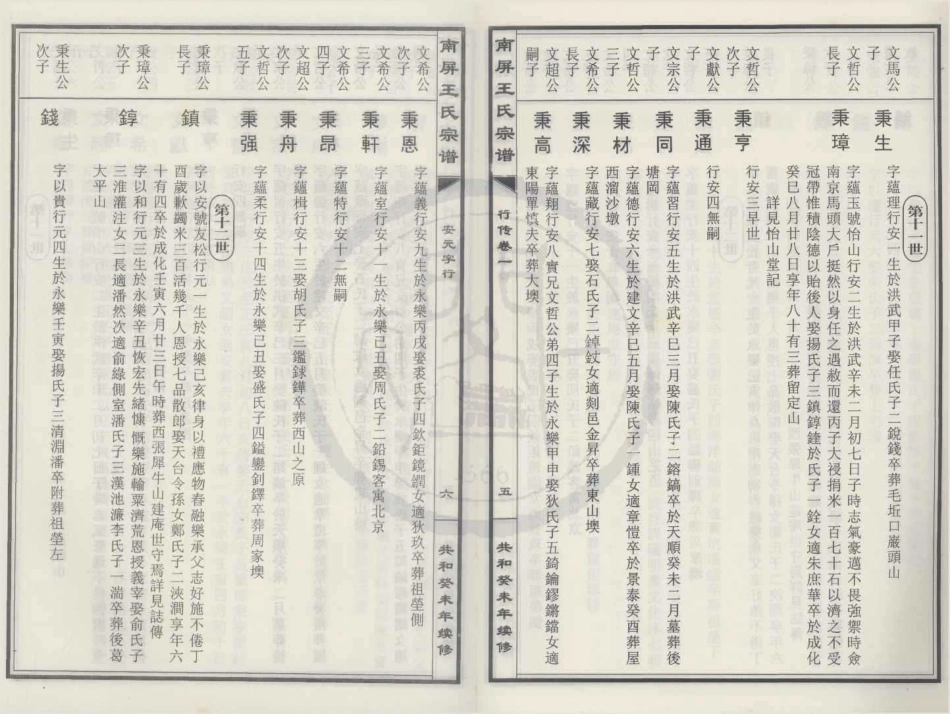 第十一世
文馬公
子
秉生
字蘊理行安一生於洪武甲子娶任氏子二銳錢卒葬毛坵口巖頭山
文哲公
長子
秉璋
字蘊玉號怡山行安二生於洪武辛未二月初七日子時志氣豪邁不畏強禦時僉
南京馬頭大戶挺然以身任之遇赦而還丙子大祲捐米一百七十石以濟之不受
冠帶惟積陰德以貽後人娶揚氏子三鎮錞鍷於氏子一銓女適朱庶華卒於成化
癸巳八月廿八日享年八十有三葬留定山
詳見怡山堂記
文哲公
次子
秉亨
行安三早世
文獻公
子
秉通
行安四無嗣
文宗公
子
秉同
字蘊習行安五生於洪武辛巳三月娶陳氏子二鎔鎬卒於天順癸未二月墓葬後
塘岡
文哲公
三子
秉材
字蘊德行安六生於建文辛巳五月娶陳氏子一鍾女適章愷卒於景泰癸酉葬屋
西溜沙墩
文希公
長子
秉深
字蘊藏行安七娶石氏子二鋽釴女適剡邑金昇卒葬東山墺
文超公
嗣子
秉高
字蘊翔行安八實兄文哲公弟四子生於永樂甲申娶狄氏子五錡鑰鏐鏘鐺女適
東陽單慎夫卒葬大墺
南屏王氏宗谱
行传卷一
五
共和癸未年续修
南屏王氏宗谱
安元字行
六
共和癸未年续修
文希公
次子
秉恩
字蘊義行安九生於永樂丙戌娶裘氏子四欽鉅鏡鐗女適狄玖卒葬祖塋側
文希公
三子
秉軒
字蘊室行安十一生於永樂己丑娶周氏子二鉛錫客寓北京
文希公
四子
秉昂
字蘊特行安十二無嗣
文超公
次子
秉舟
字蘊楫行安十三娶胡氏子三鑑銶鏵卒葬西山之原
文哲公
五子
秉强
字蘊柔行安十四生於永樂己丑娶盛氏子四鎰鑾釗鐸卒葬周家墺
第十二世
秉璋公
長子
鎮
字以安號友松行元一生於永樂己亥律身以禮應物春融樂承父志好施不倦丁
酉歲歉蠲米三百活幾千人恩授七品散郎娶天台令孫女鄭氏子二浹澗享年六
十有四卒於成化壬寅六月廿三日午時葬西張犀牛山建庵世守焉詳見誌傳
秉璋公
次子
錞
字以和行元三生於永樂辛丑恢宏先緒慷慨樂施輸粟濟荒恩授義宰娶俞氏子
三淮灌注女二長適潘然次適俞綠側室潘氏子三漢池濂李氏子一湍卒葬後葛
大平山
秉生公
次子
錢
字以貴行元四生於永樂壬寅娶揚氏子三清淵潘卒附葬祖塋左